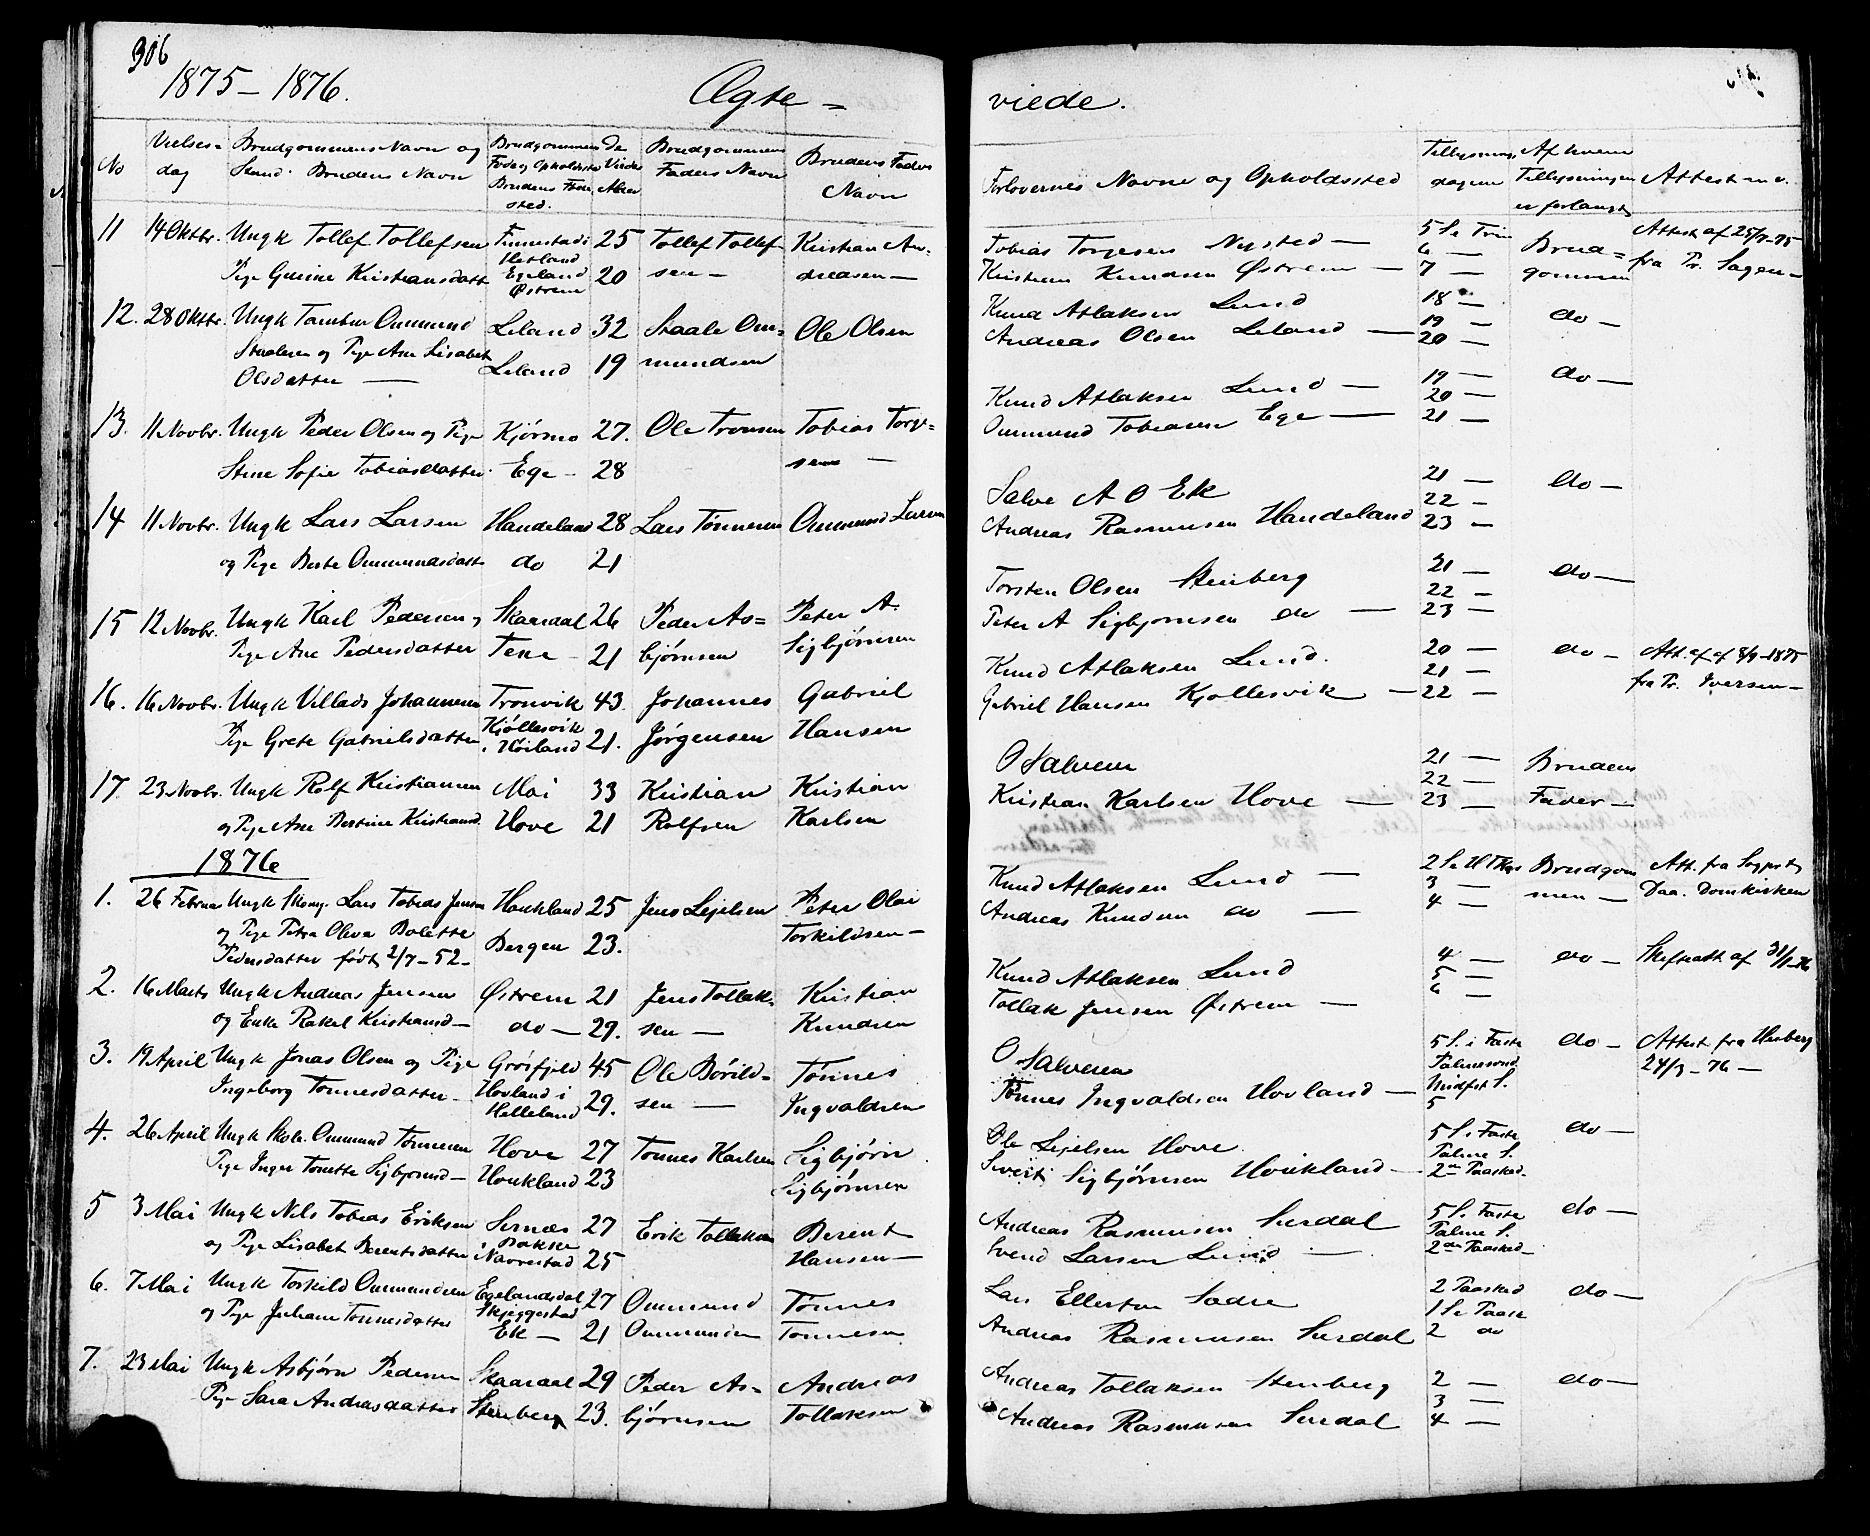 306
1875 - 1876.
Ægte =
viede.
No
Vielses=
dag
Brudgommens Navn og
Stand. Brudens Navn
Brudgommens
Føde og Opholdssted
Brudens Føde
sted.
De
Viedes
Alder
Brudgommens
Faders Navn
Brudens Faders
Navn
Forlovernes Navne og Opholdssted
Tillysnings
dagene
Af hvem
Tillysningen
er forlangt
Attest m. v.
11 14 Oktbr. Ungk Tollef Tollefsen 25 Tollef Tollef- Kristian An-
Hetland
Pige Gurine Kristiansdatt Egeland 20 sen - dreasen -
Østrem
Tobias Torgesen Nysted - 5 S e Trin Brud= Attest af 25/9-75
Kristian Knudsen Østrem - 6 - gommen fra Pr. Sagen -
7 -
12. 28 Oktbr. Ungk Tambur Ommund Leland 32 Staale Om= Ole Olsen
Staalesen og Pige Ane Lisabet Leland 19 mundsen
Olsdatter -
Knud Atlaksen Lund 18 - do -
Andreas Olsen Leland - 19 -
20 -
13. 11 Novbr. Ungk Peder Olsen og Pige Kjørmo 27. Ole Tronsen Tobias Torge=
Stine Sofie Tobiasdatter Ege - 28 sen -
Knud Atlaksen Lund - 19 - do -
20 -
Ommund Tobiassen Ege - 21 -
14 11 Novbr. Ungk Lars Larsen Handeland 28 Lars Tønnesen Ommund Larsen
og Pige Berte Ommundsdatt do 21
Salve A O Ek 21 - do -
22 -
Andreas Rasmusen Handeland 23 -
15 12 Novbr. Ungk Karl Pedersen Skaaraal 26 Peder As= Peter A.
Pige Ane Pedersdatter 21 bjørnsen Sigbjørnsen
Torsten Olsen Stenberg 21 - do -
22 -
Peter A Sigbjørnsen do - 23 -
16. 16 Novbr. Ungk Villads Johannesen Tronvik 43. Johannes Gabriel
Pige Grete Gabrielsdatter Kjøllesvik 21. Jørgensen Hansen
i Høiland
Knud Atlaksen Lund. 20 - do - Att. af 8/9-1875
21 - fra Pr. Iversen -
Gabriel Hansen Kjøllesvik - 22 -
17. 23 Novbr. Ungk Rolf Kristiansen Moi 33 Kristian Kristian
og Pige Ane Bertine Kristiansd. Hove 21 Rolfsen Karlsen
O Salvesen 21 - Brudens
22 -
Kristian Karlsen Hove - 23 - Fader -
1876
1. 26 Februar Ungk Lars Tobias Jensen Haukland 25 Jens Lejelsen Peter Olai
og Pige Petra Oliva Bolette Bergen 23. Torkildsen -
Pedersdatter født 2/7-52-
Knud Atlaksen Lund - 2 S e Brudgom Att. fra Sogpst
3 - men - Domkirken
Andreas Knudsen do - 4 -
2. 16 Marts Ungk Andreas Jensen Østrem 21 Jens Tollak- Kristian
og Enke Rakel Kristiansd - do - 29. sen - Knudsen
Knud Atlaksen Lund 4 - do - Skifteatt af 31/1-76
5 -
Tollak Jensen Østrem - 6 -
3. 19 April Ungk Jonas Olsen og Pige Grøsfjeld 45 Ole Børild- Tønnes
Ingeborg Tønnesdatter - Hovland i 29. sen - Ingvaldsen
Helleland
O Salvesen 5 S. i Faste do - Attest fra
Palmesønd 24/3-76 -
Tønnes Ingvaldsen Hovland -
4. 26 April Ungk Skol. Ommund Tønnesen Hove 27 Tønnes Karlsen Sigbjørn
Pige Inger Tonette Sigbjørnsd - Houkland 23 Sigbjørnsen
Ole Lejelsen Hove. 5 S. i Faste do -
Palme S.
Sivert Sigbjørnsen Houkland - 2den Paasked.
5 3 Mai Ungk Nils Tobias Eriksen Sirnæs 27 Erik Tollaksen Berent
og Pige Lisabet Berentsdatter Bakke 25 Hansen -
i Navrestad
Andreas Rasmusen Surdal 5 S. Faste do -
Palme S.
Svend Larsen Lund - 2den Paasked -
6. 7 Mai Ungk Torkild Ommundsen Egelandsdal 27 Ommund Tønnes
Skjeggestad
og Pige Juliane Tønnesdatter Ek - 21 Ommundsen Tønnesen
Lars Ellertsen Sadre 2 Paasked do -
1 S e Paask
Andreas Rasmusen Surdal 2 do
7. 23 Mai Ungk Asbjørn Pedersen Skaaraal 29 Peder As- Andreas
Pige Sara Andreasdatter Stenberg 23. bjørnsen Tollaksen
Andreas Tollaksen Stenberg 2 - do -
3 -
Andreas Rasmusen Surdal 4 -